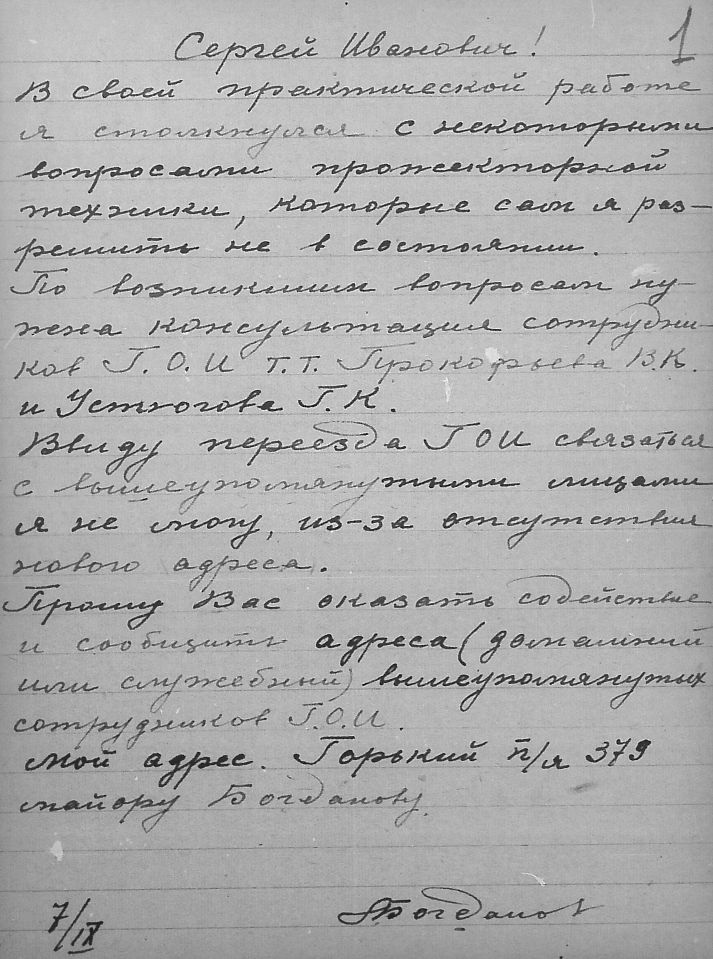 1
Сергей Иванович!
В своей практической работе
я столкнулся с некоторыми
вопросами прожекторной
техники, которые сам я раз-
решить не в состоянии.
По возникшим вопросам ну-
жна консультация сотрудни-
ков Г.О.И т.т. Прокофьева В.К.
и Устюгова Г.К.
Ввиду переезда ГОИ связаться
с вышеупомянутыми лицами
я не могу, из-за отсутствия
нового адреса.
Прошу Вас оказать содействие
и сообщить адреса (домашний
или служебный) вышеупомянутых
сотрудников Г.О.И.
Мой адрес. Горький п/я 379
майору Богданову.
7/IX Богданов